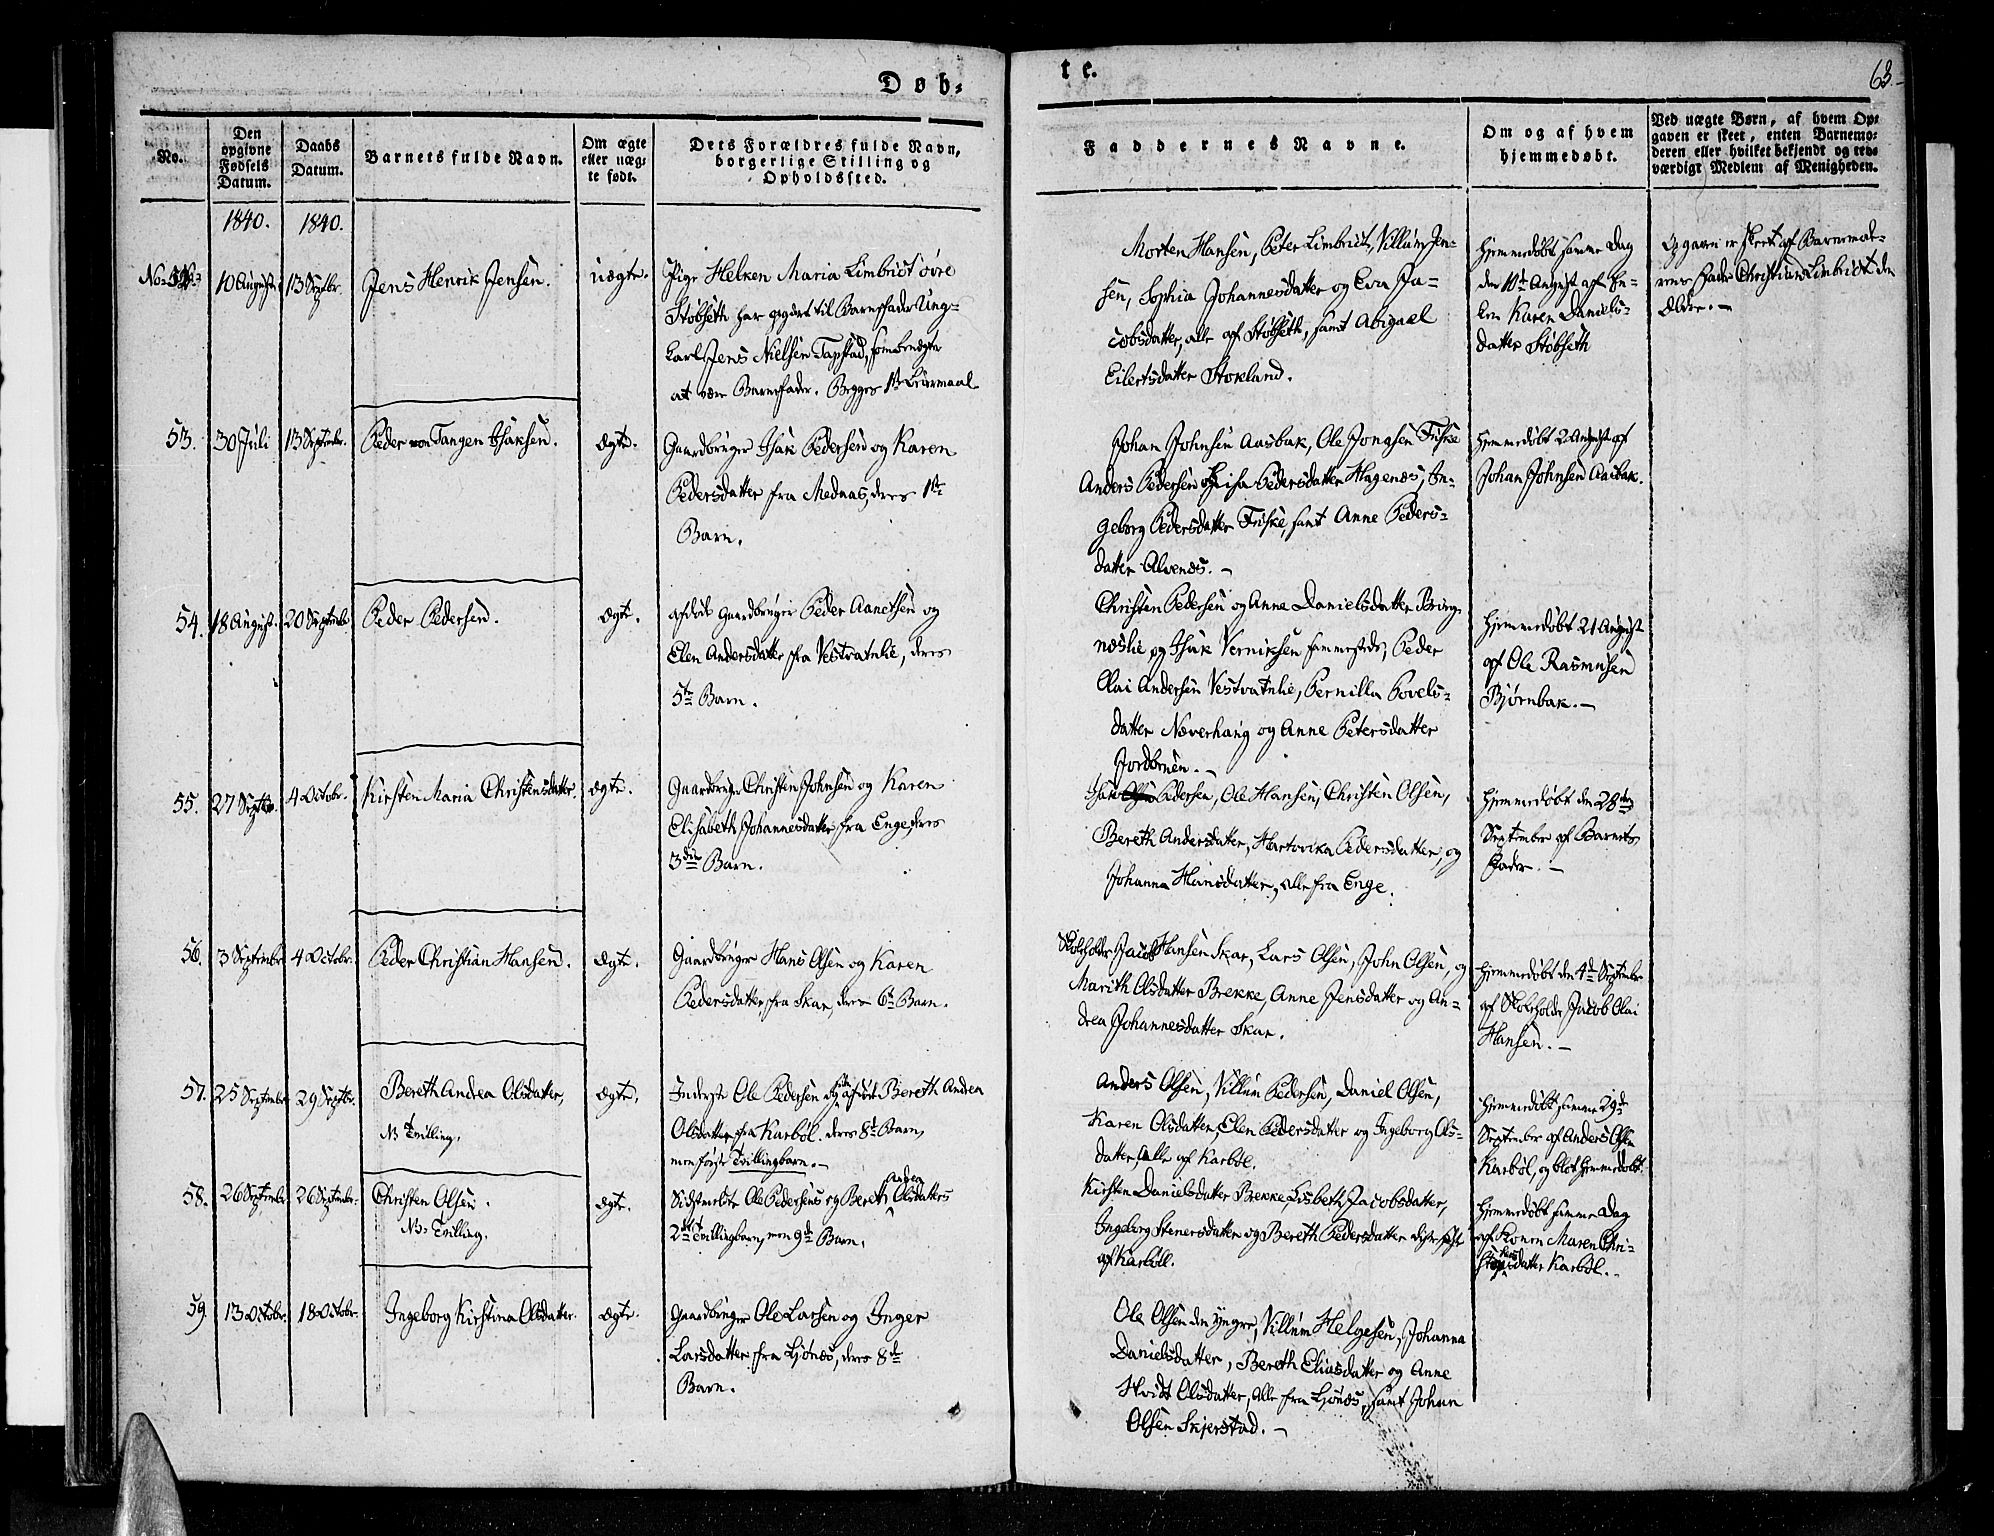 Døb-
te.
63.
No.
Den opgivne Fødsels Datum.
Daabs Datum.
Barnets fulde Navn.
Om ægte eller uæg-te født.
Dets Forældres fulde Navn, borgerlige Stilling og Opholdssted.
Faddernes Navne.
Om og af hvem hjemmedøbt.
Ved uægte Børn, af hvem Op-gaven er skeet, enten Barnemo-deren eller hvilket bekjendt og tro-værdigt Medlem af Menigheden.
1840.
1840.
10 August
13 Septbr.
Jens Henrik Jensen.
uægte.
Pige Helken Maria Limbriet øvre
Støbseth har opgivet til Barnefader Ung-
karl Jens Nielsen Tapstad, som benegter
at være Barnefader. Begges 1ste Leiermaal
Morten Hansen, Peter Limbriet, Villum Jen-
sen, Sophia Johannesdatter og Eva Ja-
cobsdatter, alle af Støbseth, samt Abigael
Eilertsdatter Storland.
Hjemmedøbt samme Dag
den 10de August af En-
ken Karen Daniels-
datter Støbseth
Opgaven er skeet af Barnemod-
erens Fader Christian Limbriet den
Ældre. –
53.
30 Juli
13 Septembr.
Peder von Tangen Isaksen.
Ægte.
Gaardbruger Isak Pedersen og Karen
Pedersdatter fra Mednaas, deres 1ste
Barn.
Johan Johnsen Aasbak, Ole Jonasen Fuske
Anders Pedersen og Lisa Pedersdatter Hagenæs, In-
geborg Pedersdatter Fuske, samt Anne Peders-
datter Alvenæs. –
Hjemmedøbt 2 August af
Johan Johnsen Aasbak.
54.
18 August.
20 Septembr.
Peder Pedersen.
Ægte.
afdøde Gaardbruger Peder Aanetsen og
Elen Andersdatter fra Vestvatnlie, deres
5te Barn.
Christen Pedersen og Anne Danielsdatter Bring-
næslie og Isak Verniksen sammesteds, Peder
Olai Andersen Vestvatnlie, Pernilla Povels-
datter Næverhaug og Anne Petersdatter
Jordbruen. –
Hjemmedøbt 21 August
af Ole Rasmusen
Bjørnbak. –
55.
27 Septbr.
4 Octobr.
Kirsten Maria Christensdatter.
Ægte.
Gaardbruger Christen Johnsen og Karen
Elisabeth Johannesdatter fra Enge, deres
3die Barn.
Isak Pedersen, Ole Hansen, Christen Olsen,
Bereth Andersdatter, Hartvika Pedersdatter, og
Johanna Hansdatter, alle fra Enge.
Hjemmedøbt den 28de
September af Barnets
Fader. –
56.
3 Septembr
4 Octobr.
Peder Christian Hansen.
Ægte.
Gaardbruger Hans Olsen og Karen
Pedersdatter fra Skar, deres 6te Barn.
Skoleholder Jacob Hansen Skar, Lars Olsen, John Olsen, og
Marith Olsdatter Brekke, Anne Jensdatter og An-
drea Johannesdatter Skar.
Hjemmedøbt den 4de Septembr
af Skoleholder Jacob Olai
Hansen. –
57.
25 Septembr
29 Septbr.
Bereth Andrea Olsdatter,
NB Tvilling.
Ægte.
Inderst Ole Pedersen og afdøde Bereth Andrea
Olsdatter fra Karbøl. deres 8de Barn,
men første Tvillingbarn. –
Anders Olsen, Villum Pedersen, Daniel Olsen,
Karen Olsdatter, Elen Pedersdatter og Ingeborg Ols-
datter, alle af Karbøl.
Hjemmedøbt samme 29de
September af Anders Olsen
Karbøl, og blot hjemmedøbt.
58.
26 Septembr
26 Septembr.
Christen Olsen.
NB. Tvilling.
Ægte.
Sidstmeldte Ole Pedersens og Bereth Andrea Olsdatters
2det Tvillingbarn, men 9de Barn.
Kirsten Danielsdatter Brekke, Lisbeth Jacobsdatter,
Ingeborg Stenersdatter og Bereth Pedersdatter
af Karbøll.
Hjemmedøbt samme Dag
af Konen Maren Chri-
stophersdatter Karbøl. –
59.
13 Octobr.
18 Octobr.
Ingeborg Kirstina Olsdatter.
Ægte.
Gaardbruger Ole Larsen og Inger
Larsdatter fra Ljønæs, deres 8de
Barn.
Ole Olsen den yngre, Villum Helgesen, Johanna
Danielsdatter, Bereth Eliasdatter og Anne
Hvidt Olsdatter, alle fra Ljønæs, samt Johan
Olsen Skjerstad. –